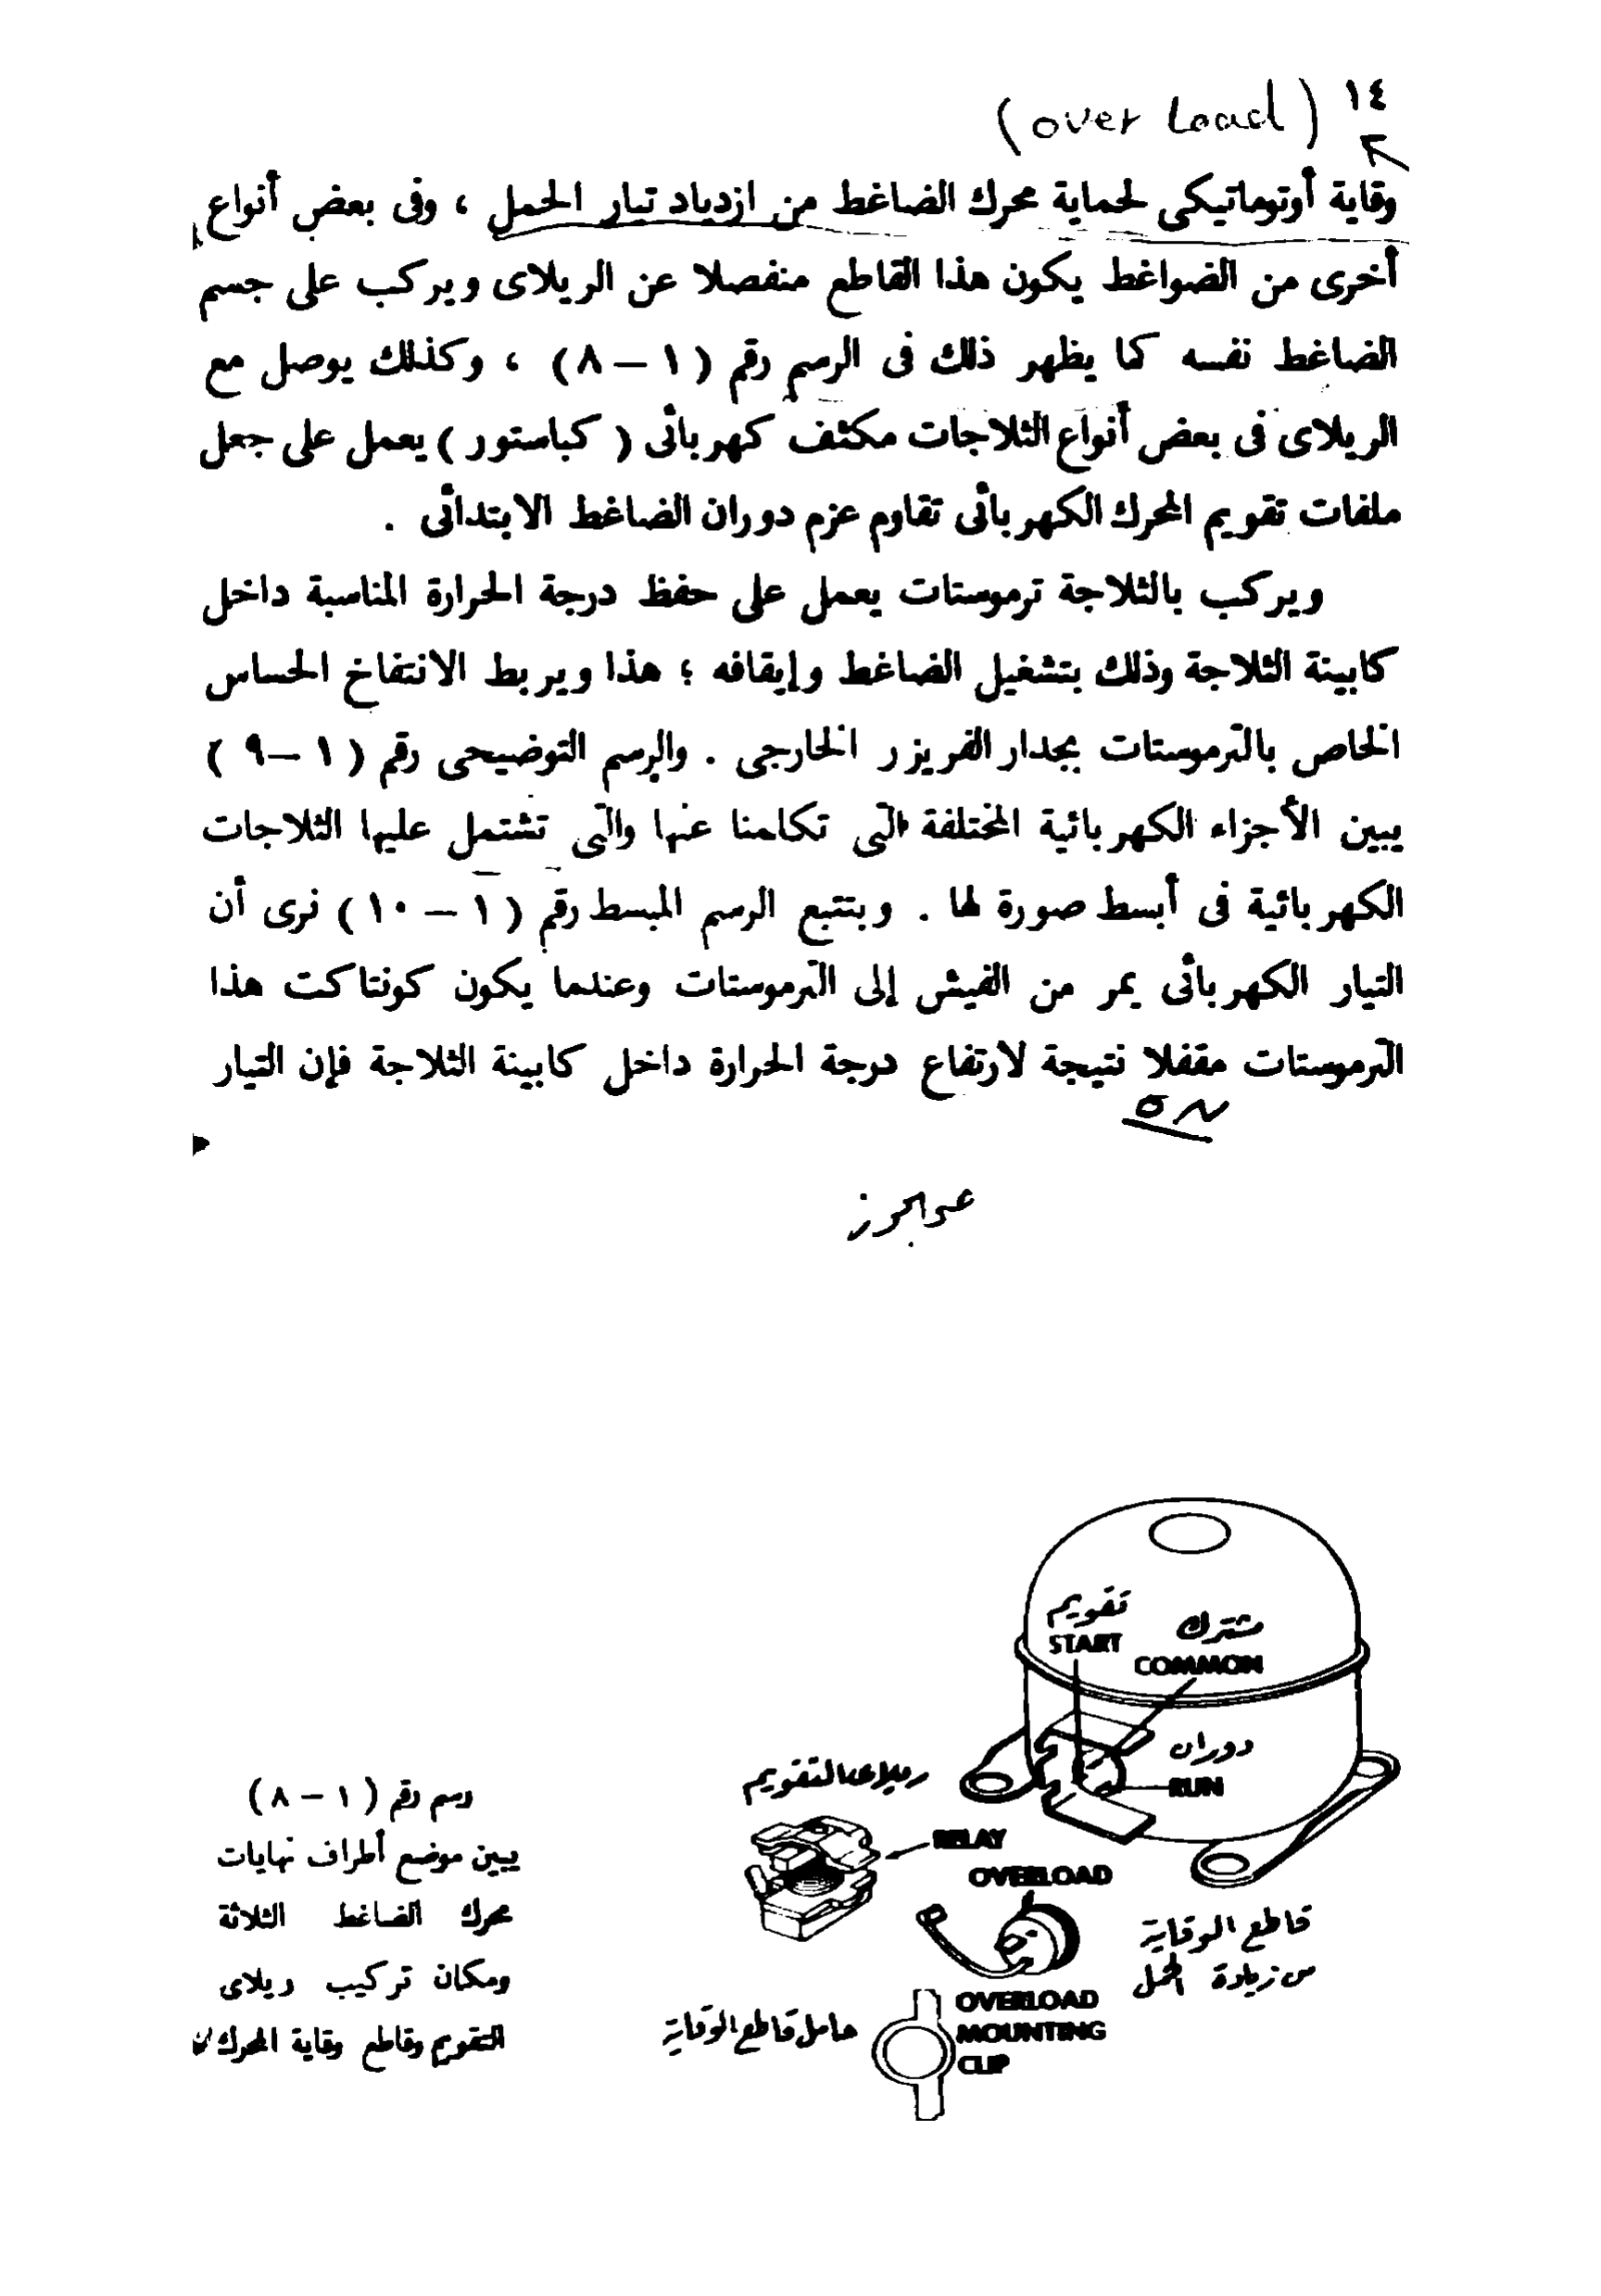 ١٤
(over Load)
وقاية أوتوماتيكى لحماية محرك الضاغط من ازدياد تيار الحمل ، وفى بعض أنواع
أخرى من الضواغط يكون هذا القاطع منفصلا عن الريلاى ويركب على جسم
الضاغط نفسه كما يظهر ذلك فى الرسم رقم ( ١ – ٨ ) ، وكذلك يوصل مع
الريلاى فى بعض أنواع الثلاجات مكثف كهربائى ( كباستور ) يعمل على جعل
ملفات تقويم المحرك الكهربائى تقاوم عزم دوران الضاغط الابتدائى .
ويركب بالثلاجة ترموستات يعمل على حفظ درجة الحرارة المناسبة داخل
كابينة الثلاجة وذلك بتشغيل الضاغط وإيقافه ؛ هذا ويربط الانتفاخ الحساس
الخاص بالترموستات بجدار الفريزر الخارجى . والرسم التوضيحى رقم ( ١ – ٩ )
يبين الأجزاء الكهربائية المختلفة التى تكلمنا عنها والتى تشتمل عليها الثلاجات
الكهربائية فى أبسط صورة لها . وبتتبع الرسم المبسط رقم ( ١ – ١٠ ) نرى أن
التيار الكهربائى يمر من الفيش إلى الترموستات وعندما يكون كونتاكت هذا
الترموستات مقفلا نتيجة لارتفاع درجة الحرارة داخل كابينة الثلاجة فإن التيار
ON
تقويم
START
مشترك
COMMON
دوران
RUN
ريلاى التقويم
RELAY
OVERLOAD
قاطع الوقاية
من زيادة الحمل
OVERLOAD
MOUNTING
CLIP
حامل قاطع الوقاية
رسم رقم ( ١ – ٨ )
يبين موضع أطراف نهايات
محرك الضاغط الثلاثة
ومكان تركيب ريلاى
التقويم وقاطع وقاية المحرك